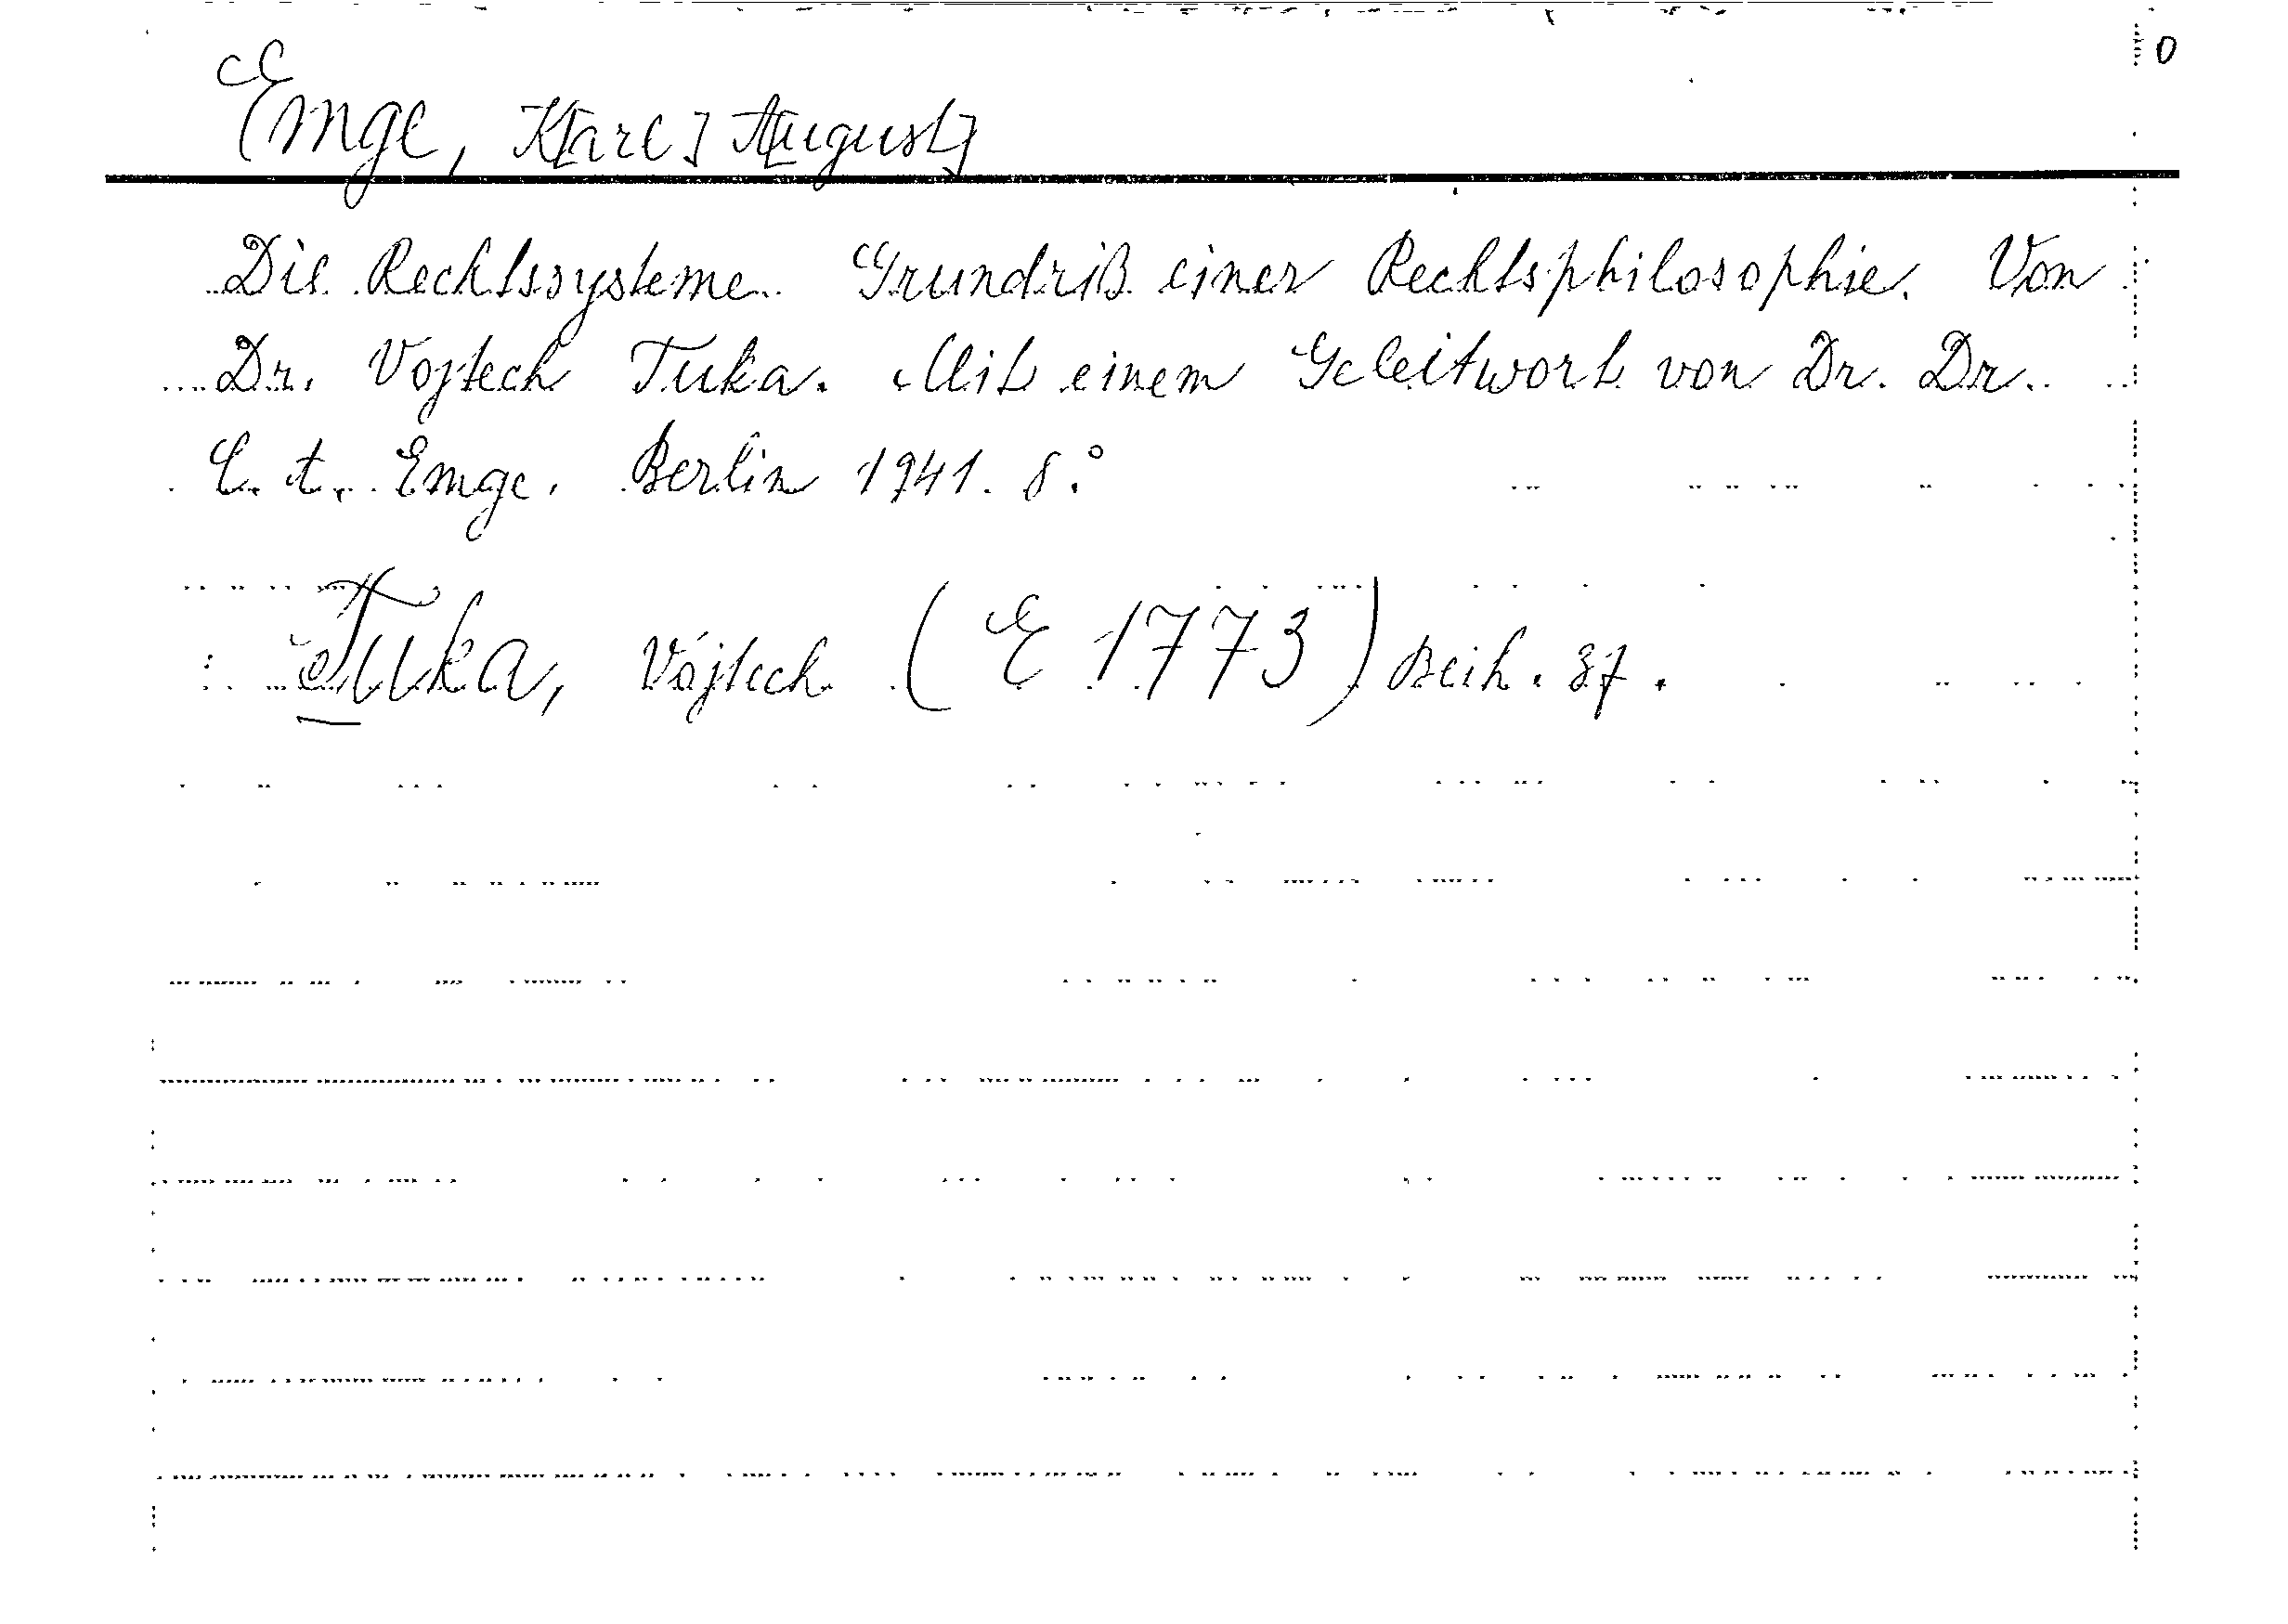 0
Emge, K[arl] A[ugust]
Die Rechtssysteme. Grundriß einer Rechtsphilosophie. Von
Dr. Vojtech Tuka. Mit einem Geleitwort von Dr. Dr.
C. A. Emge. Berlin 1941. 8°.
Tuka, Vojtech (E 1773) Beih. 37.